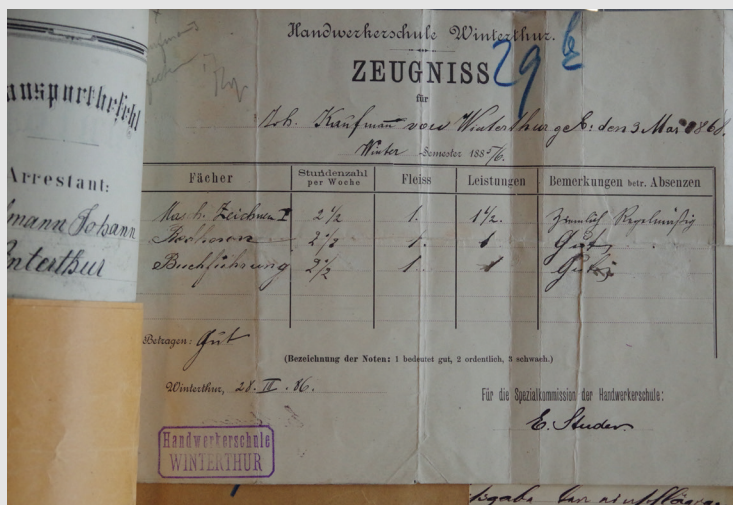 Transportbefehl
Arrestant:
mann Johann
Winterthur
Handwerkerschule Winterthur.
29 b
ZEUGNISS
für
Joh. Kaufmann von Winterthur geb: den 3 Mai 1868.
Winter Semester 1885/6.
Fächer Stundenzahl per Woche Fleiss Leistungen Bemerkungen betr. Absenzen
Masch. Zeichnen I 2 1/2 1. 1 1/2. Ziemlich Regelmäßig
2 1/2 1. 1 Gut
Buchführung 2 1/2 1. 1 Gut
Betragen: Gut
(Bezeichnung der Noten: 1 bedeutet gut, 2 ordentlich, 3 schwach.)
Winterthur, 28. III. 86.
Für die Spezialkommission der Handwerkerschule:
E. Studer.
Handwerkerschule
WINTERTHUR